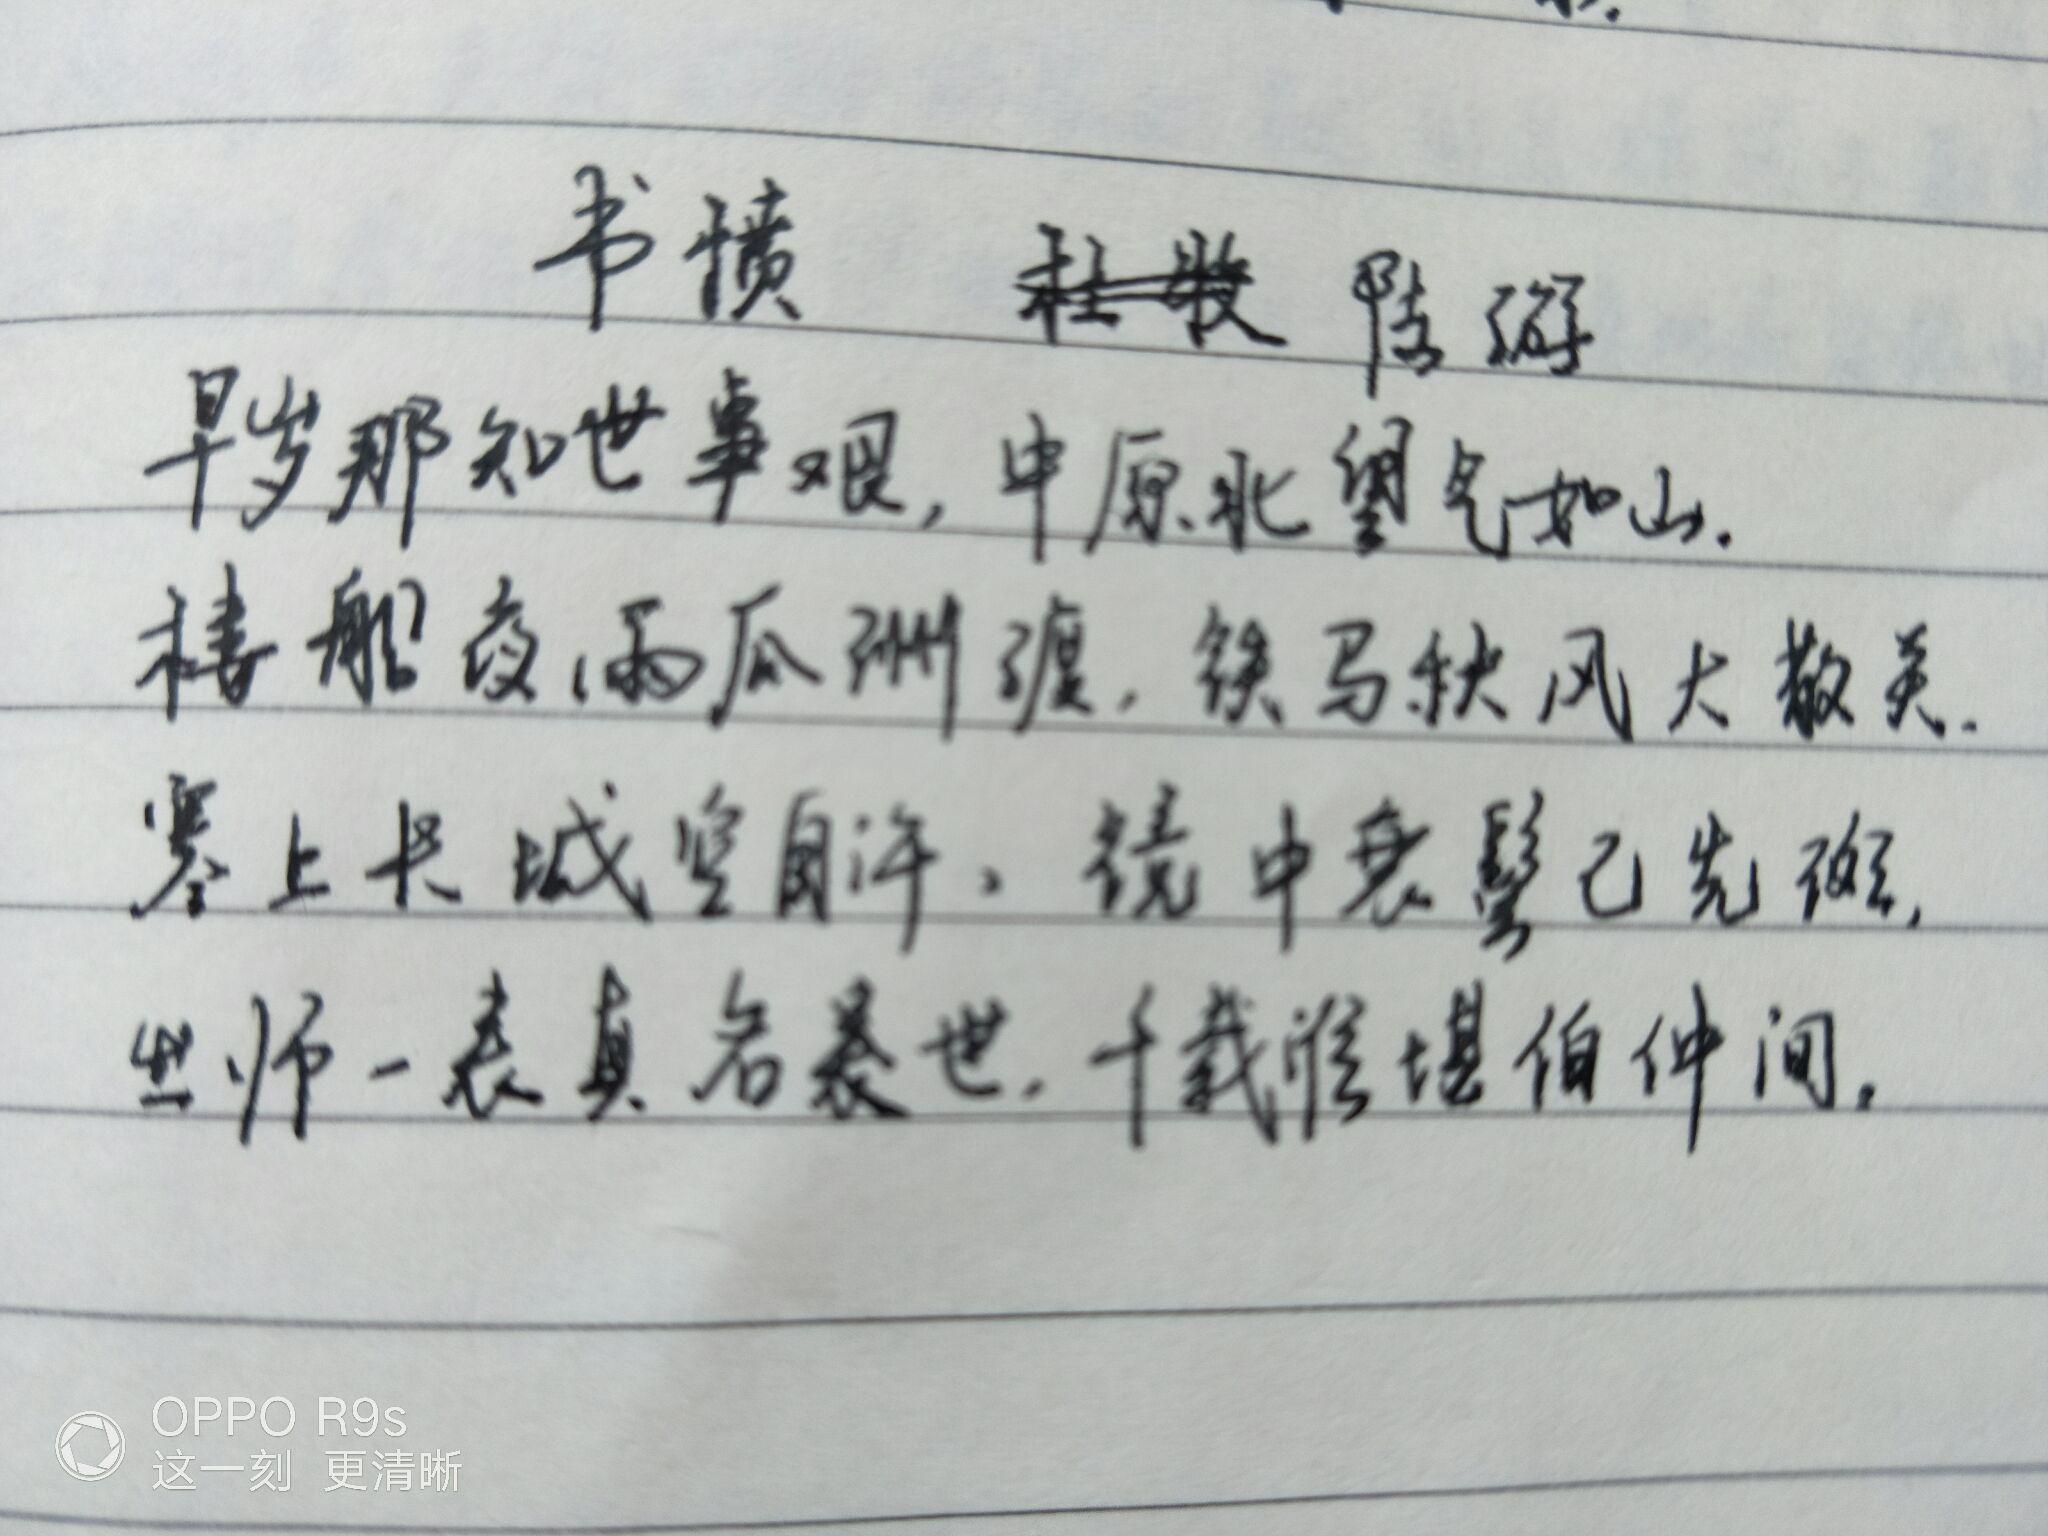 书愤 杜牧 陆游
早岁那知世事艰,中原北望气如山.
楼船夜雨瓜洲渡.铁马秋风大散关.
塞上长城空自许,镜中衰鬓已先斑.
出师一表真名暮世.千载谁堪伯仲间.
OPPO R9s
这一刻 更清晰